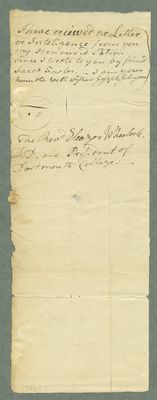 I have recieved no Letter
or Inteligence from you
my Honoured Patron
since I wrote to you by friend
Jacob Fowler. — I am your
humble well wisher Joseph Johnson
The Revd. Eleazar Wheelock.
D.D. and President of
Dartmouth College. —